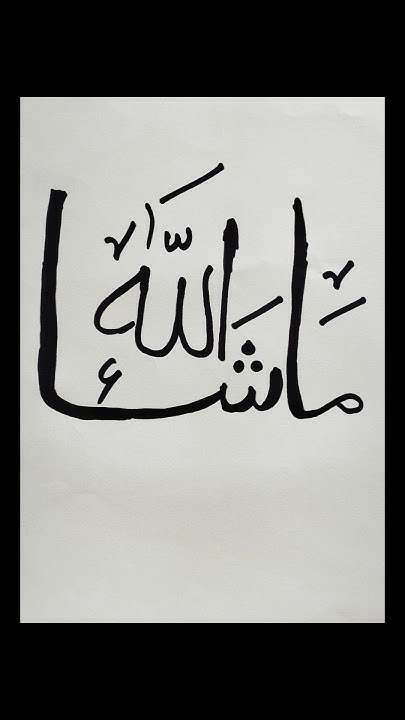 مَاشَاء اللَّه